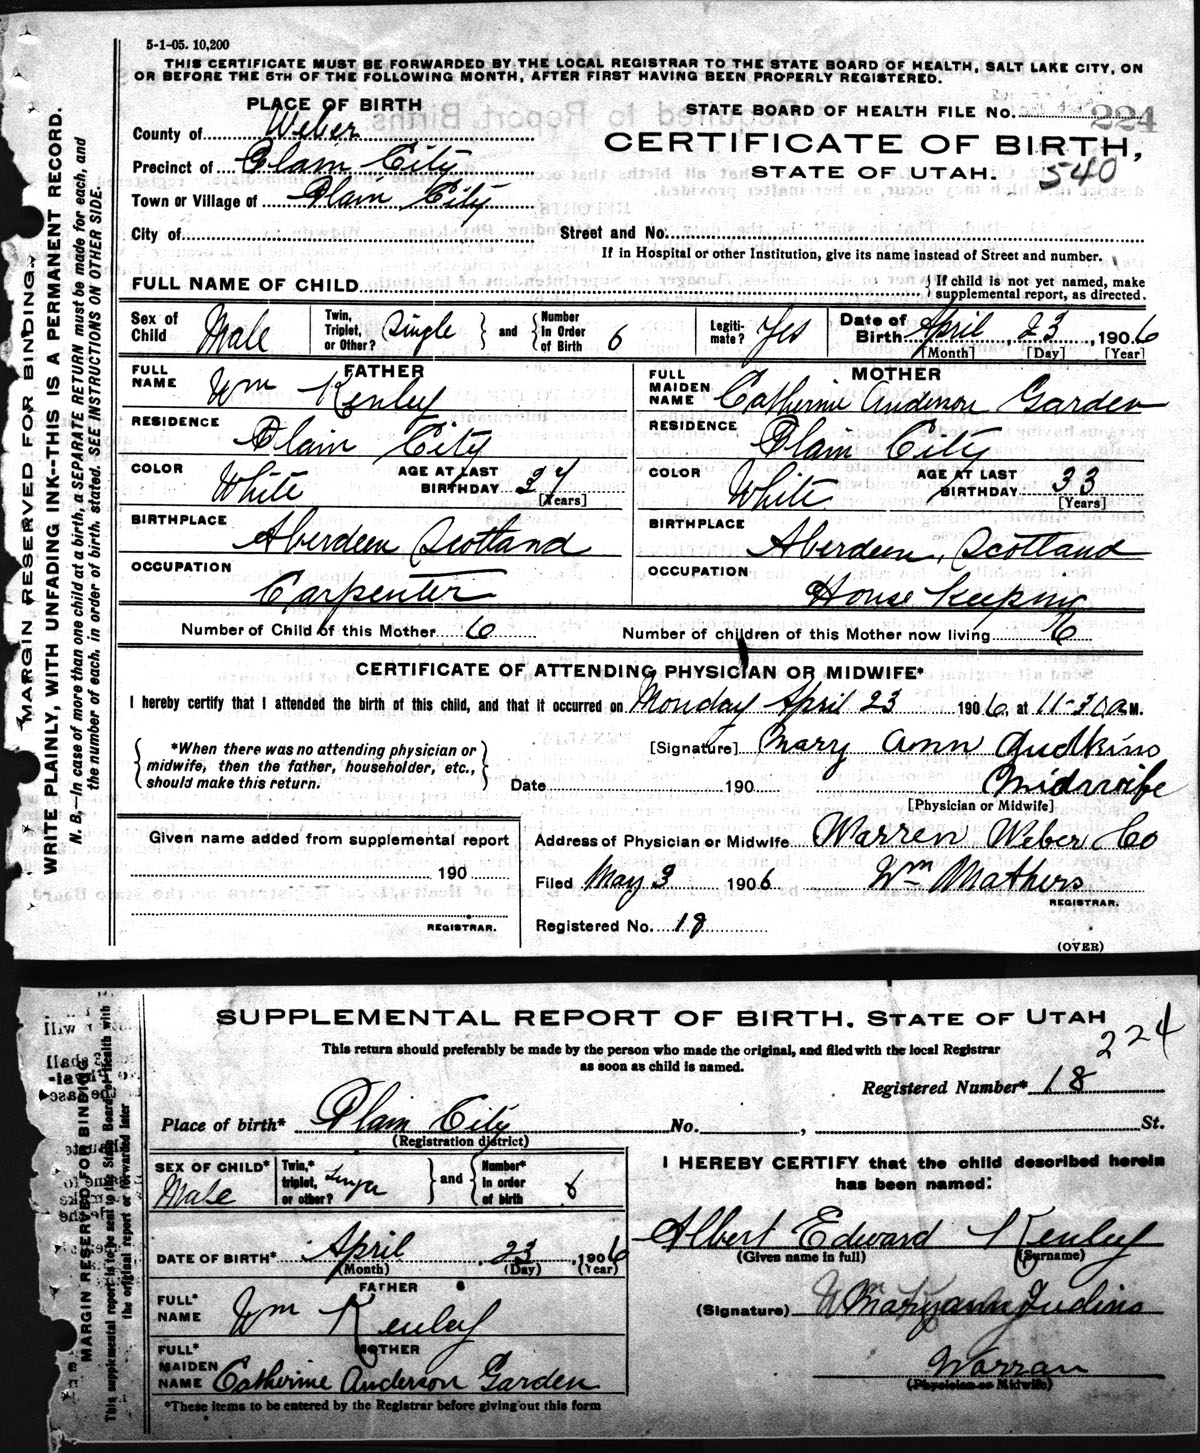 5-1-05. 10,200
THIS CERTIFICATE MUST BE FORWARDED BY THE LOCAL REGISTRAR TO THE STATE BOARD OF HEALTH, SALT LAKE CITY, ON
OR BEFORE THE 5TH OF THE FOLLOWING MONTH, AFTER FIRST HAVING BEEN PROPERLY REGISTERED.
MARGIN RESERVED FOR BINDING.
WRITE PLAINLY, WITH UNFADING INK--THIS IS A PERMANENT RECORD.
N. B.—In case of more than one child at a birth, a SEPARATE RETURN must be made for each, and
the number of each, in order of birth, stated. SEE INSTRUCTIONS ON OTHER SIDE.
PLACE OF BIRTH
County of Weber
Precinct of Plain City
Town or Village of Plain City
STATE BOARD OF HEALTH FILE No. 224
CERTIFICATE OF BIRTH,
STATE OF UTAH. 540
City of Street and No.
If in Hospital or other Institution, give its name instead of Street and number.
FULL NAME OF CHILD { If child is not yet named, make
supplemental report, as directed.
Sex of Child Male Twin, Triplet, or Other? Single } and { Number In Order of Birth 6 Legiti-mate? Yes Date of Birth April 23, 1906
[Month] [Day] [Year]
FATHER
FULL NAME Wm Kenley
RESIDENCE Plain City
COLOR White AGE AT LAST BIRTHDAY 34
[Years]
BIRTHPLACE Aberdeen Scotland
OCCUPATION Carpenter
MOTHER
FULL MAIDEN NAME Catherine Anderson Garden
RESIDENCE Plain City
COLOR White AGE AT LAST BIRTHDAY 33
[Years]
BIRTHPLACE Aberdeen, Scotland
OCCUPATION House Keeping
Number of Child of this Mother 6 Number of children of this Mother now living 6
CERTIFICATE OF ATTENDING PHYSICIAN OR MIDWIFE*
I hereby certify that I attended the birth of this child, and that it occurred on Monday April 23 1906, at 11-30 a M.
{ *When there was no attending physician or
midwife, then the father, householder, etc.,
should make this return. }
[Signature] Mary Ann Gudkins
Date 190 Midwife
[Physician or Midwife]
Given name added from supplemental report
190
REGISTRAR.
Address of Physician or Midwife Warren Weber Co
Filed May 3 1906 Wm Mathers
REGISTRAR.
Registered No. 18
(OVER)
SUPPLEMENTAL REPORT OF BIRTH. STATE OF UTAH
This return should preferably be made by the person who made the original, and filed with the local Registrar
as soon as child is named.
224
Registered Number* 18
MARGIN RESERVED FOR BINDING
This supplemental report is to be sent to the State Board of Health with
the original report or forwarded later
Place of birth* Plain City No. , St.
(Registration district)
SEX OF CHILD* Male Twin,* triplet, or other? } and { Number* in order of birth 6
DATE OF BIRTH* April 23, 1906
(Month) (Day) (Year)
FATHER
FULL* NAME Wm Kenley
MOTHER
FULL* MAIDEN NAME Catherine Anderson Garden
*These items to be entered by the Registrar before giving out this form
I HEREBY CERTIFY that the child described herein
has been named:
Albert Edward Kenley
(Given name in full) (Surname)
(Signature) Mary ann Judins
Warran
(Physician or Midwife)